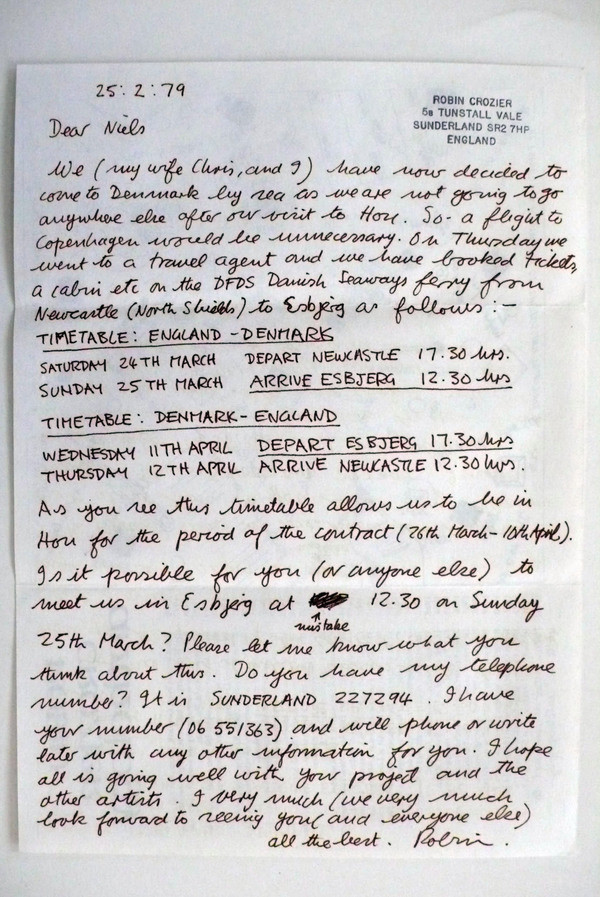 25:2:79
ROBIN CROZIER
5B TUNSTALL VALE
SUNDERLAND SR2 7HP
ENGLAND
Dear Niels
We (my wife Chris, and I) have now decided to
come to Denmark by sea as we are not going to go
anywhere else after our visit to Hou. So - a flight to
Copenhagen would be unnecessary. On Thursday we
went to a travel agent and we have booked tickets,
a cabin etc on the DFDS Danish Seaways ferry from
Newcastle (North Shields) to Esbjerg as follows:-
TIMETABLE: ENGLAND - DENMARK
SATURDAY 24TH MARCH DEPART NEWCASTLE 17.30 hrs.
SUNDAY 25TH MARCH ARRIVE ESBJERG 12.30 hrs
TIMETABLE: DENMARK - ENGLAND
WEDNESDAY 11TH APRIL DEPART ESBJERG 17.30 hrs
THURSDAY 12TH APRIL ARRIVE NEWCASTLE 12.30 hrs.
As you see this timetable allows us to be in
Hou for the period of the contract (26th March - 10th April).
Is it possible for you (or anyone else) to
meet us in Esbjerg at 12.30 on Sunday
mistake
25th March? Please let me know what you
think about this. Do you have my telephone
number? It is SUNDERLAND 227294. I have
your number (06 551363) and will phone or write
later with any other information for you. I hope
all is going well with your project and the
other artists. I very much (we very much
look forward to seeing you (and everyone else)
all the best. Robin.